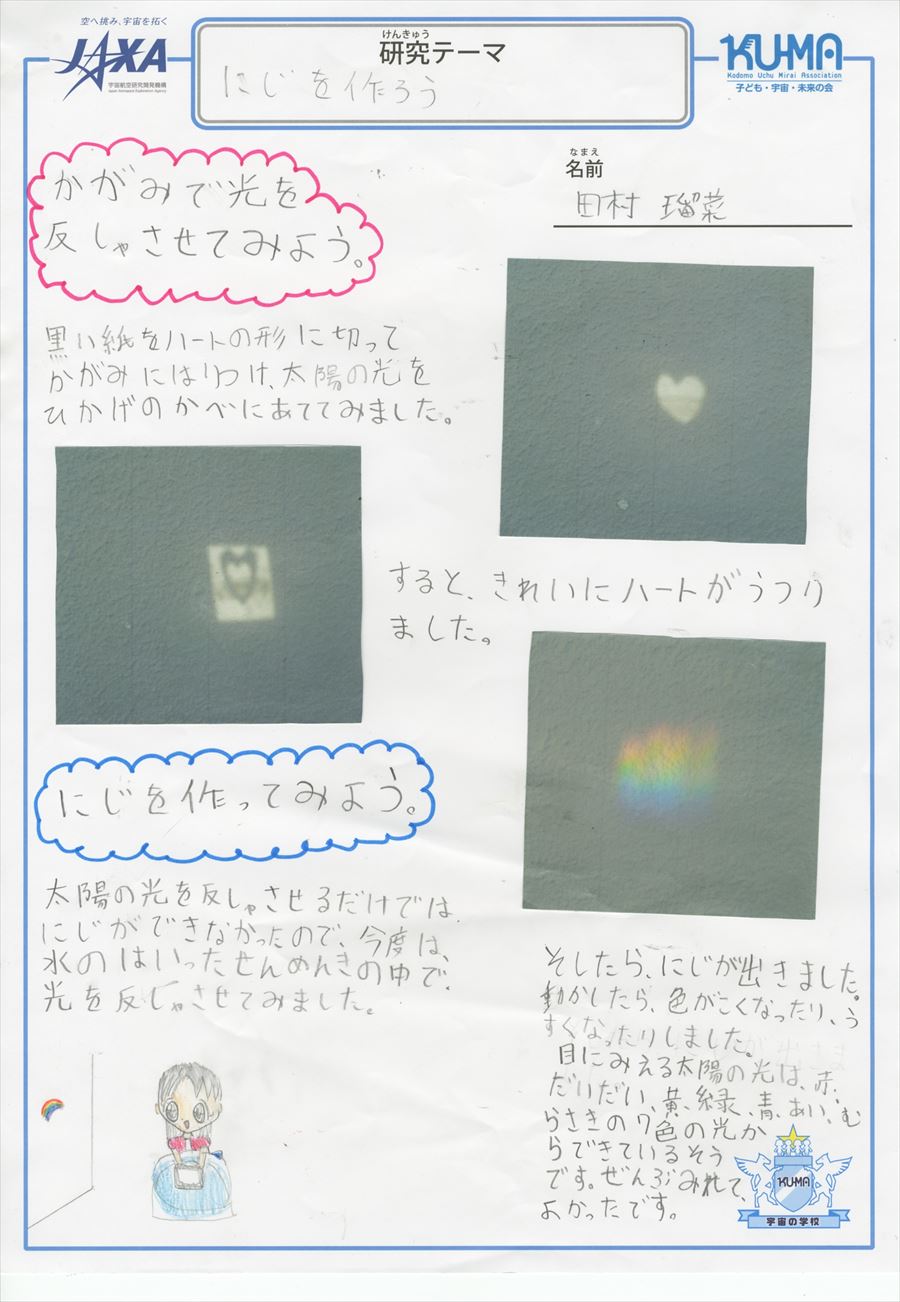 空へ挑み、宇宙を拓く
JAXA
宇宙航空研究開発機構
Japan Aerospace Exploration Agency
けんきゅう
研究テーマ
にじを作ろう
KU-MA
Kodomo Uchu Mirai Association
子ども・宇宙・未来の会
なまえ
名前
田村 瑠菜
かがみで光を
反しゃさせてみよう。
黒い紙をハートの形に切って
かがみにはりつけ、太陽の光を
ひかげのかべにあててみました。
すると、きれいにハートがうつり
ました。
にじを作ってみよう。
太陽の光を反しゃさせるだけでは
にじができなかったので、今度は、
水のはいったせんめんきの中で、
光を反しゃさせてみました。
そしたら、にじが出きました。
動かしたら、色がこくなったり、う
すくなったりしました。
目にみえる太陽の光は、赤、
だいだい、黄、緑、青、あい、む
らさきの7色の光か
らできているそう
です。ぜんぶみれて、
よかったです。
KU-MA
宇宙の学校